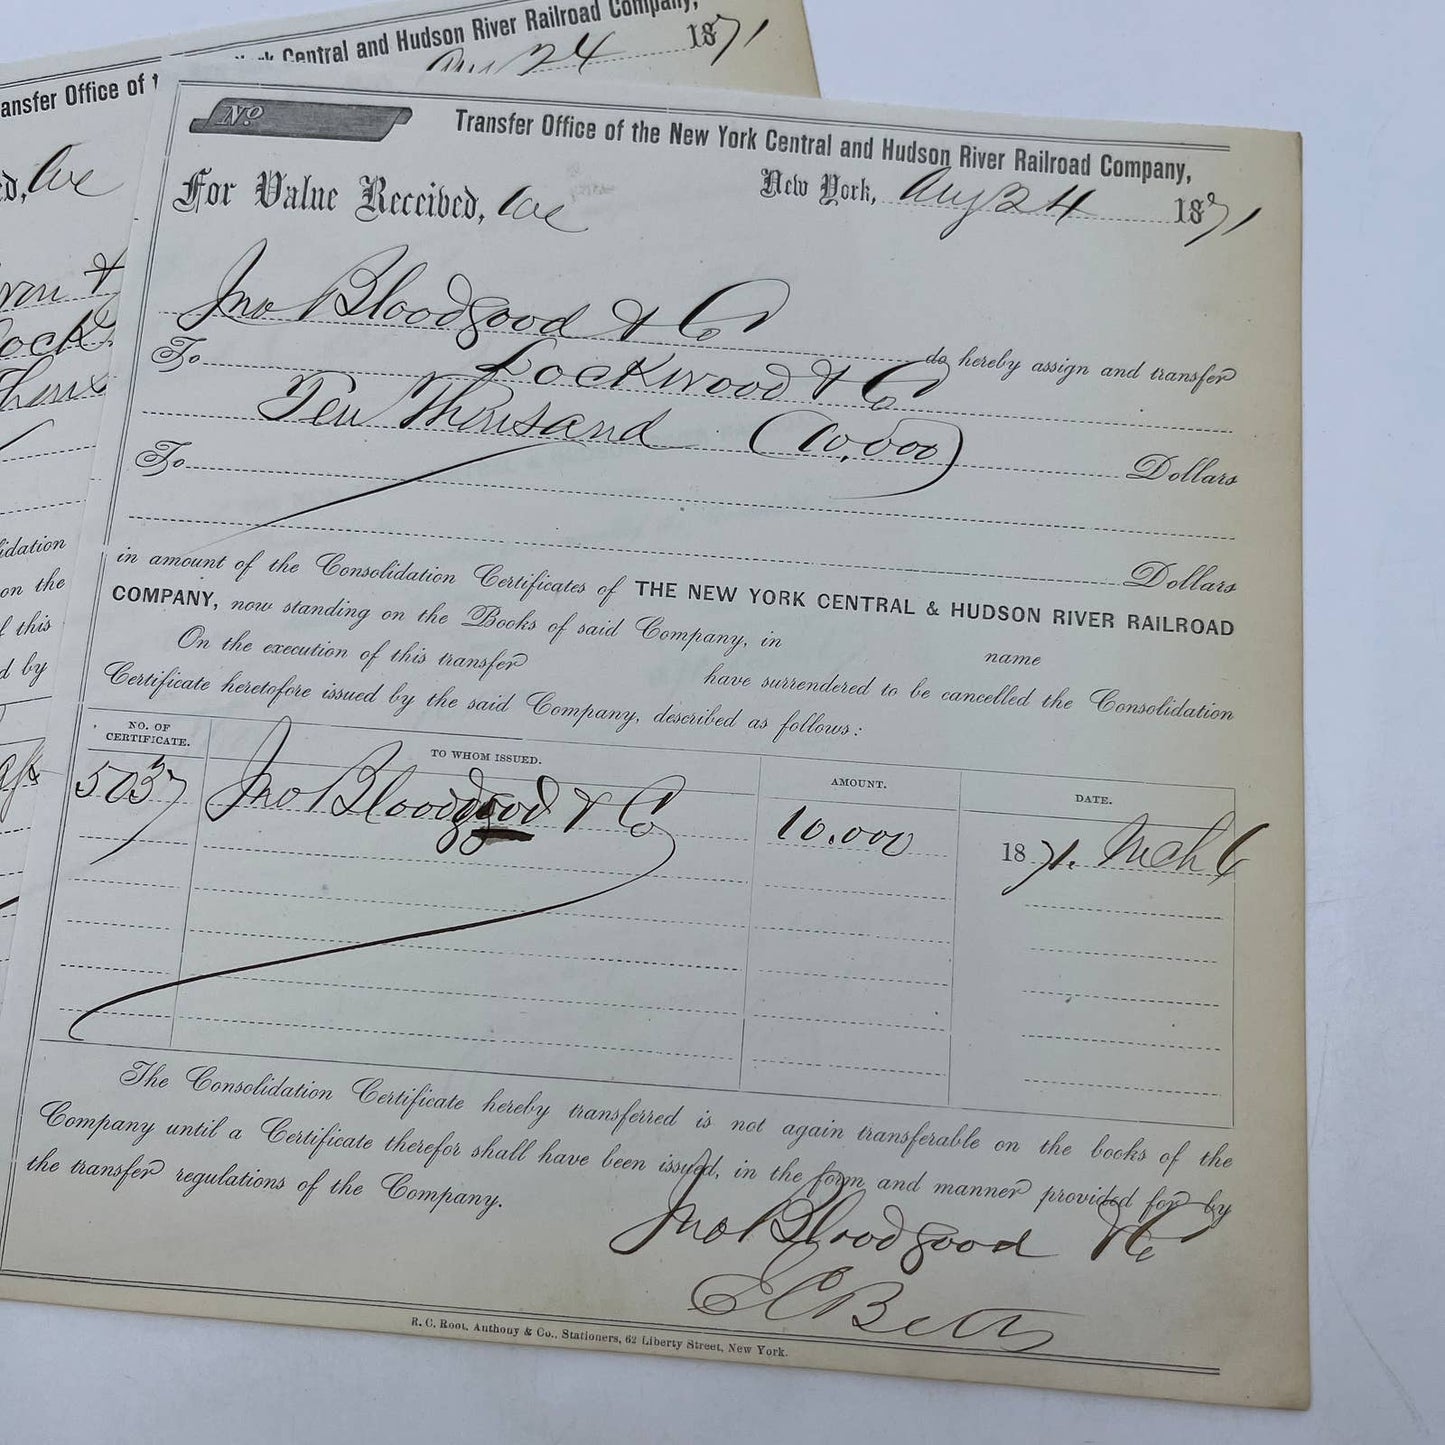 Central and Hudson River Railroad Company,
Aug 24 1871
ansfer Office of t
ed, We
ock
idation
on the
f this
d by
No
Transfer Office of the New York Central and Hudson River Railroad Company,
New York, Aug 24 1871
For Value Received, We
Jno Bloodgood & Co
do hereby assign and transfer
To Lockwood & Co
Ten Thousand (10,000) Dollars
To
Dollars
in amount of the Consolidation Certificates of THE NEW YORK CENTRAL & HUDSON RIVER RAILROAD
COMPANY, now standing on the Books of said Company, in name
On the execution of this transfer have surrendered to be cancelled the Consolidation
Certificate heretofore issued by the said Company, described as follows:
NO. OF CERTIFICATE. TO WHOM ISSUED. AMOUNT. DATE.
5037 Jno Bloodgood & Co 10.000 1871. Mch 6
The Consolidation Certificate hereby transferred is not again transferable on the books of the
Company until a Certificate therefor shall have been issued, in the form and manner provided for by
the transfer regulations of the Company.
Jno Bloodgood & Co
E C Betts
R. C. Root, Anthony & Co., Stationers, 62 Liberty Street, New York.